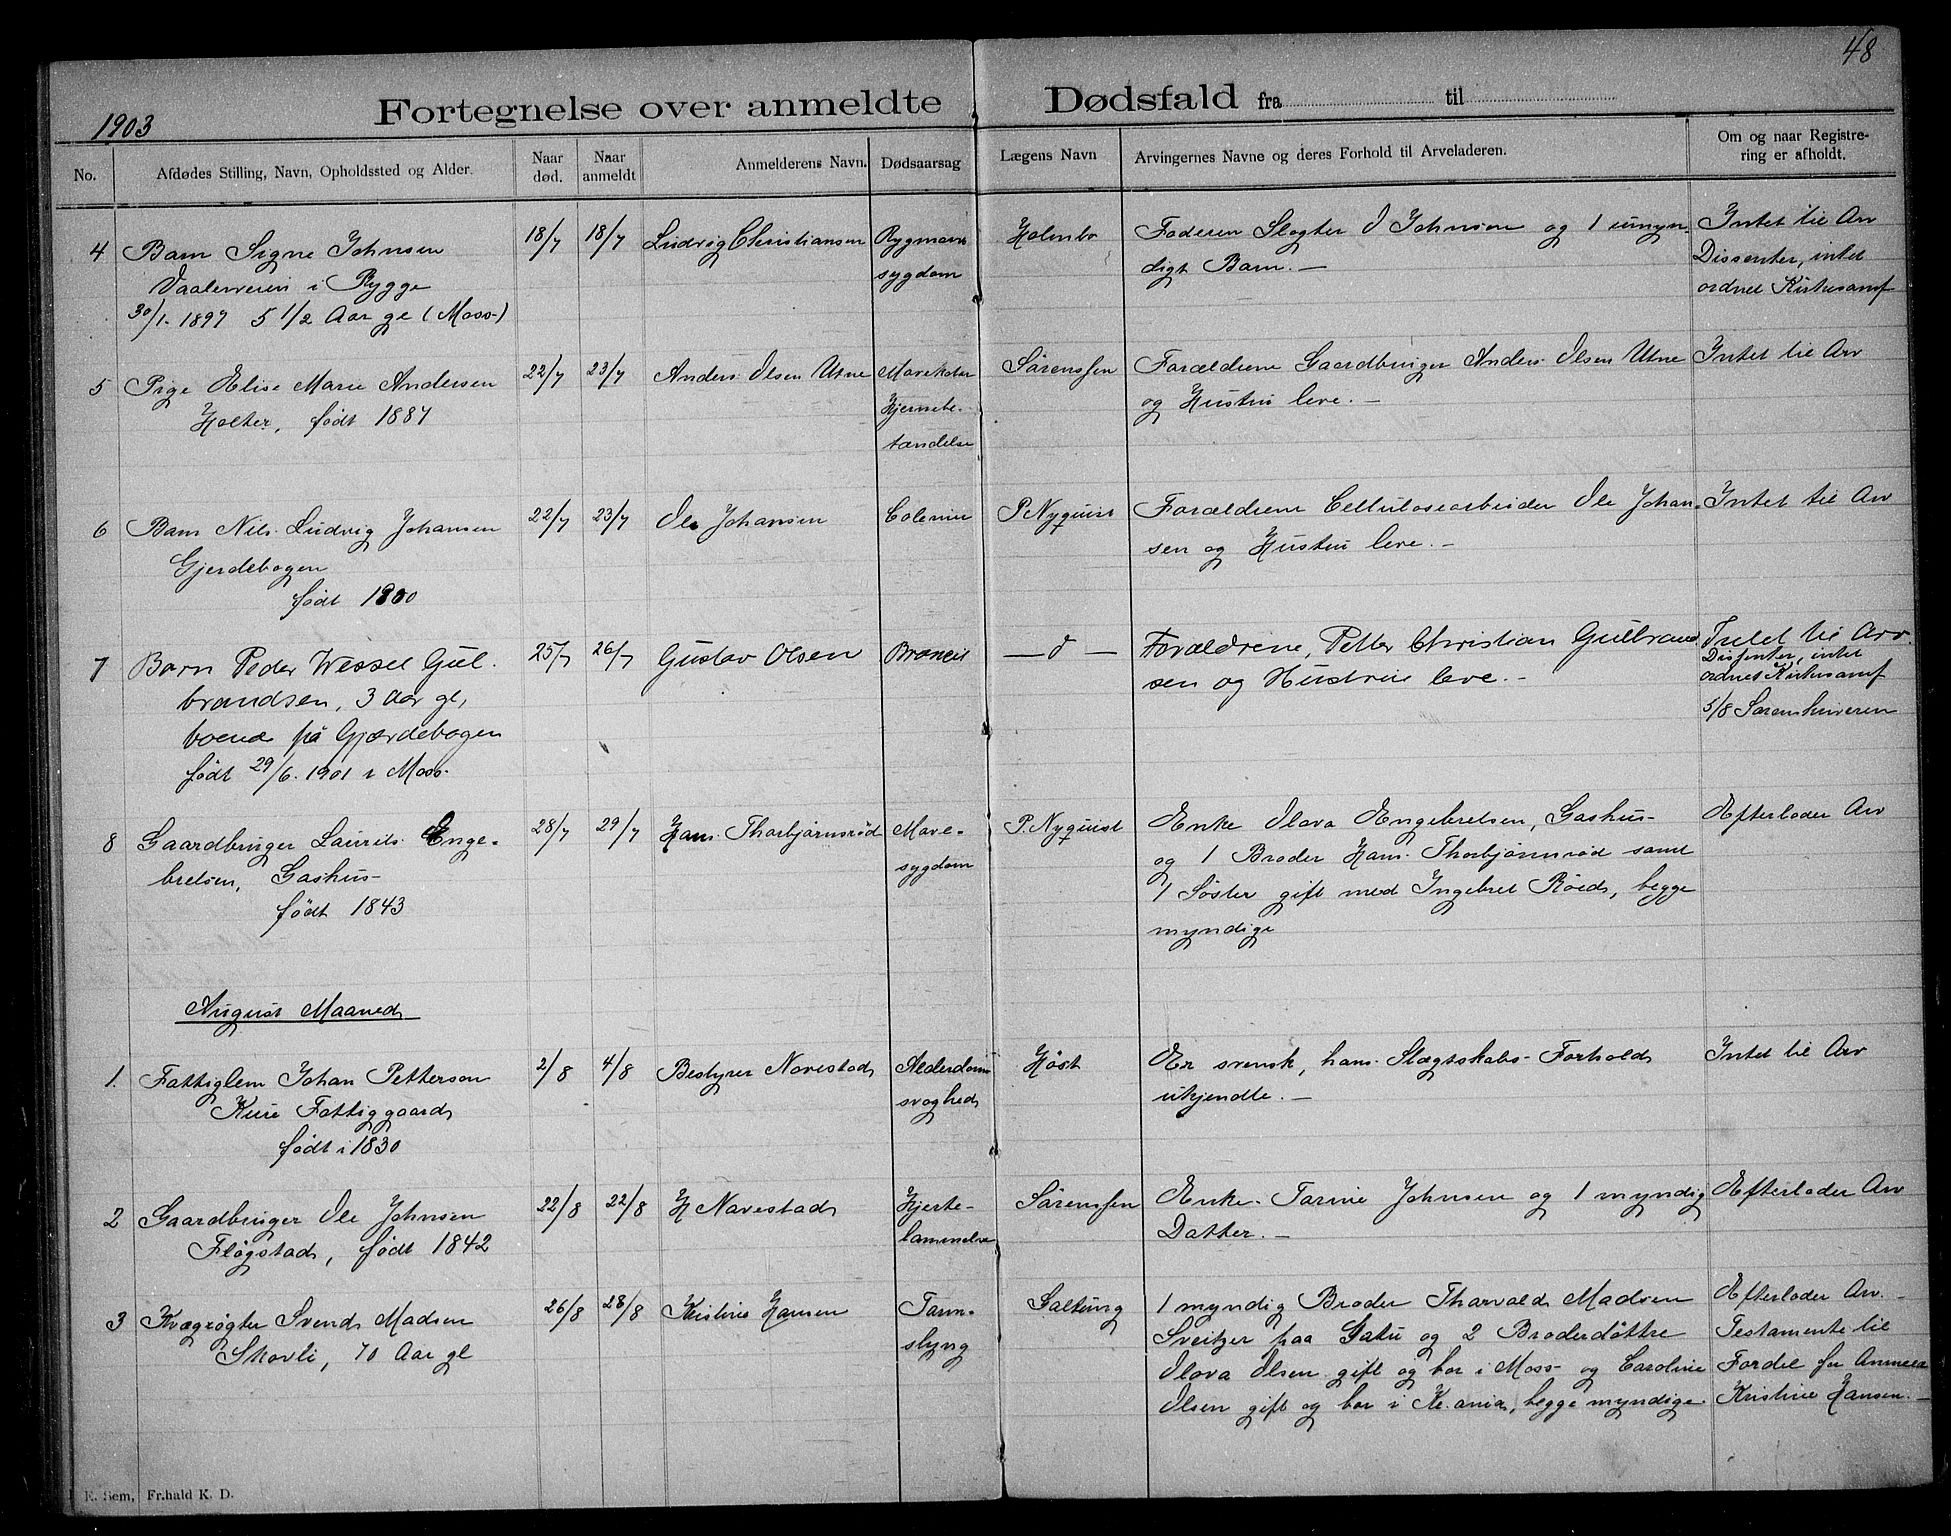 48
1903
Fortegnelse over anmeldte Dødsfald fra til
No. Afdødes Stilling, Navn, Opholdssted og Alder. Naar død. Naar anmeldt Anmelderens Navn. Dødsaarsag Lægens Navn Arvingernes Navne og deres Forhold til Arveladeren. Om og naar Registrering er afholdt.
4 Barn Signe Johnsen 18/7 18/7 Ludvig Christiansen Rygmarvs Holmbo Faderen Slagter O Johnsen og 1 umyn- Intet til Arv
i Rygge sygdom digt Barn. — Dissenter, intet
30/1. 1897 5 1/2 Aar gl (Moss) ordnet Kirkesamf
5 Pige Elise Marie Andersen 22/7 23/7 Anders Olsen Utne Sørenssen Forældrene Gaardbruger Anders Olsen Utne Intet til Arv
Holter, født 1887 Hjernebe- og Hustru leve. —
tændelse
6 Barn Nils Ludvig Johansen 22/7 23/7 Ole Johansen P. Nyquist Forældrene Cellulosearbeider Ole Johan- Intet til Arv
Gjerdebogen sen og Hustru leve. —
født 1900
7 Barn Peder Wessel Gul- 25/7 26/7 Gustav Olsen — d — Forældrene, Petter Christian Gulbrand Intet til Arv.
brandsen, 3 aar gl, sen og Hustrue leve. — Dissenter, intet
boende på Gjærdebogen ordnet Kirkesamf
født 29/6. 1901 i Moss. 5/8 Sorenskriveren
8 Gaardbruger Laurits Enge- 28/7 29/7 Hans Thorbjørnsrød Mave- P. Nyquist Enke Olava Engebretsen, Gashus- Efterlader Arv
bretsen, Gashus- sygdom og 1 Broder Hans Thorbjørnsrød samt
født 1843 1 Søster gift med Ingebret Røed, begge
myndige
August Maaned
1. Fattiglem Johan Petterson 2/8 4/8 Bestyrer Navestad Alderdoms Høst Er svensk, hans Slægtskabs- Forhold Intet til Arv
Kure Fattiggaard svaghed ukjendte. —
født i 1830
2 Gaardbruger Ole Johnsen 22/8 22/8 H Navestad Hjerte- Sørenssen Enke Tarine Johnsen og 1 myndig Efterlader Arv
Fløgstad, født 1842 lammelse Datter. —
3 Kvægrøgter Svend Madsen 26/8 28/8 Kristine Hansen Tarm- Galtung 1 myndig Broder Tharvald Madsen Efterlader Arv. —
Skovli, 70 Aar gl slyng Sveitzer paa og 2 Broderdøttre Testamente til
Olava Olsen gift og bor i Moss og Caroline Fordel for Anmeld
Olsen gift og bor i Kr.ania, begge myndige. Kristine Hansen. —
E. Sem, Fr.hald K. D.